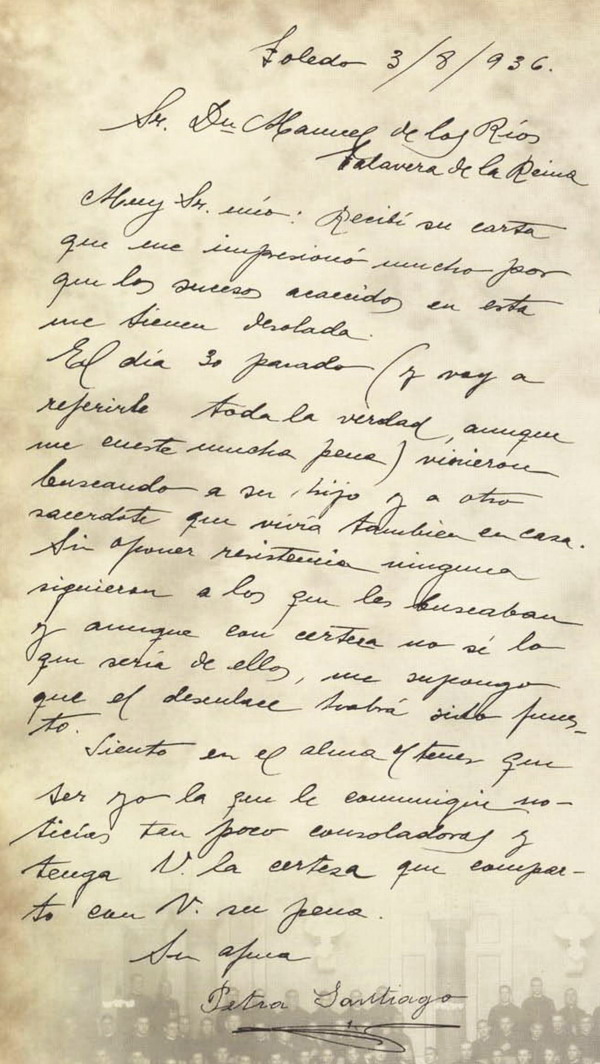 Toledo 3/8/936.
Sr. Dn Manuel de los Ríos
Talavera de la Reina
Muy Sr. mío: Recibí su carta
que me impresionó mucho por
que los sucesos acaecidos en esta
me tienen desolada.
El día 30 pasado (y voy a
referirle toda la verdad, aunque
me cueste mucha pena) vinieron
buscando a su hijo y a otro
sacerdote que vivía tambien en casa.
Sin oponer resistencia ninguna
siguieron a los que les buscaban
y aunque con certeza no sé lo
que sería de ellos, me supongo
que el desenlace habrá sido funes-
to.
Siento en el alma el tener que
ser yo la que le comunique no-
ticias tan poco consoladoras y
tenga V. la certeza que compar-
to con V. su pena.
Su afma
Petra Santiago